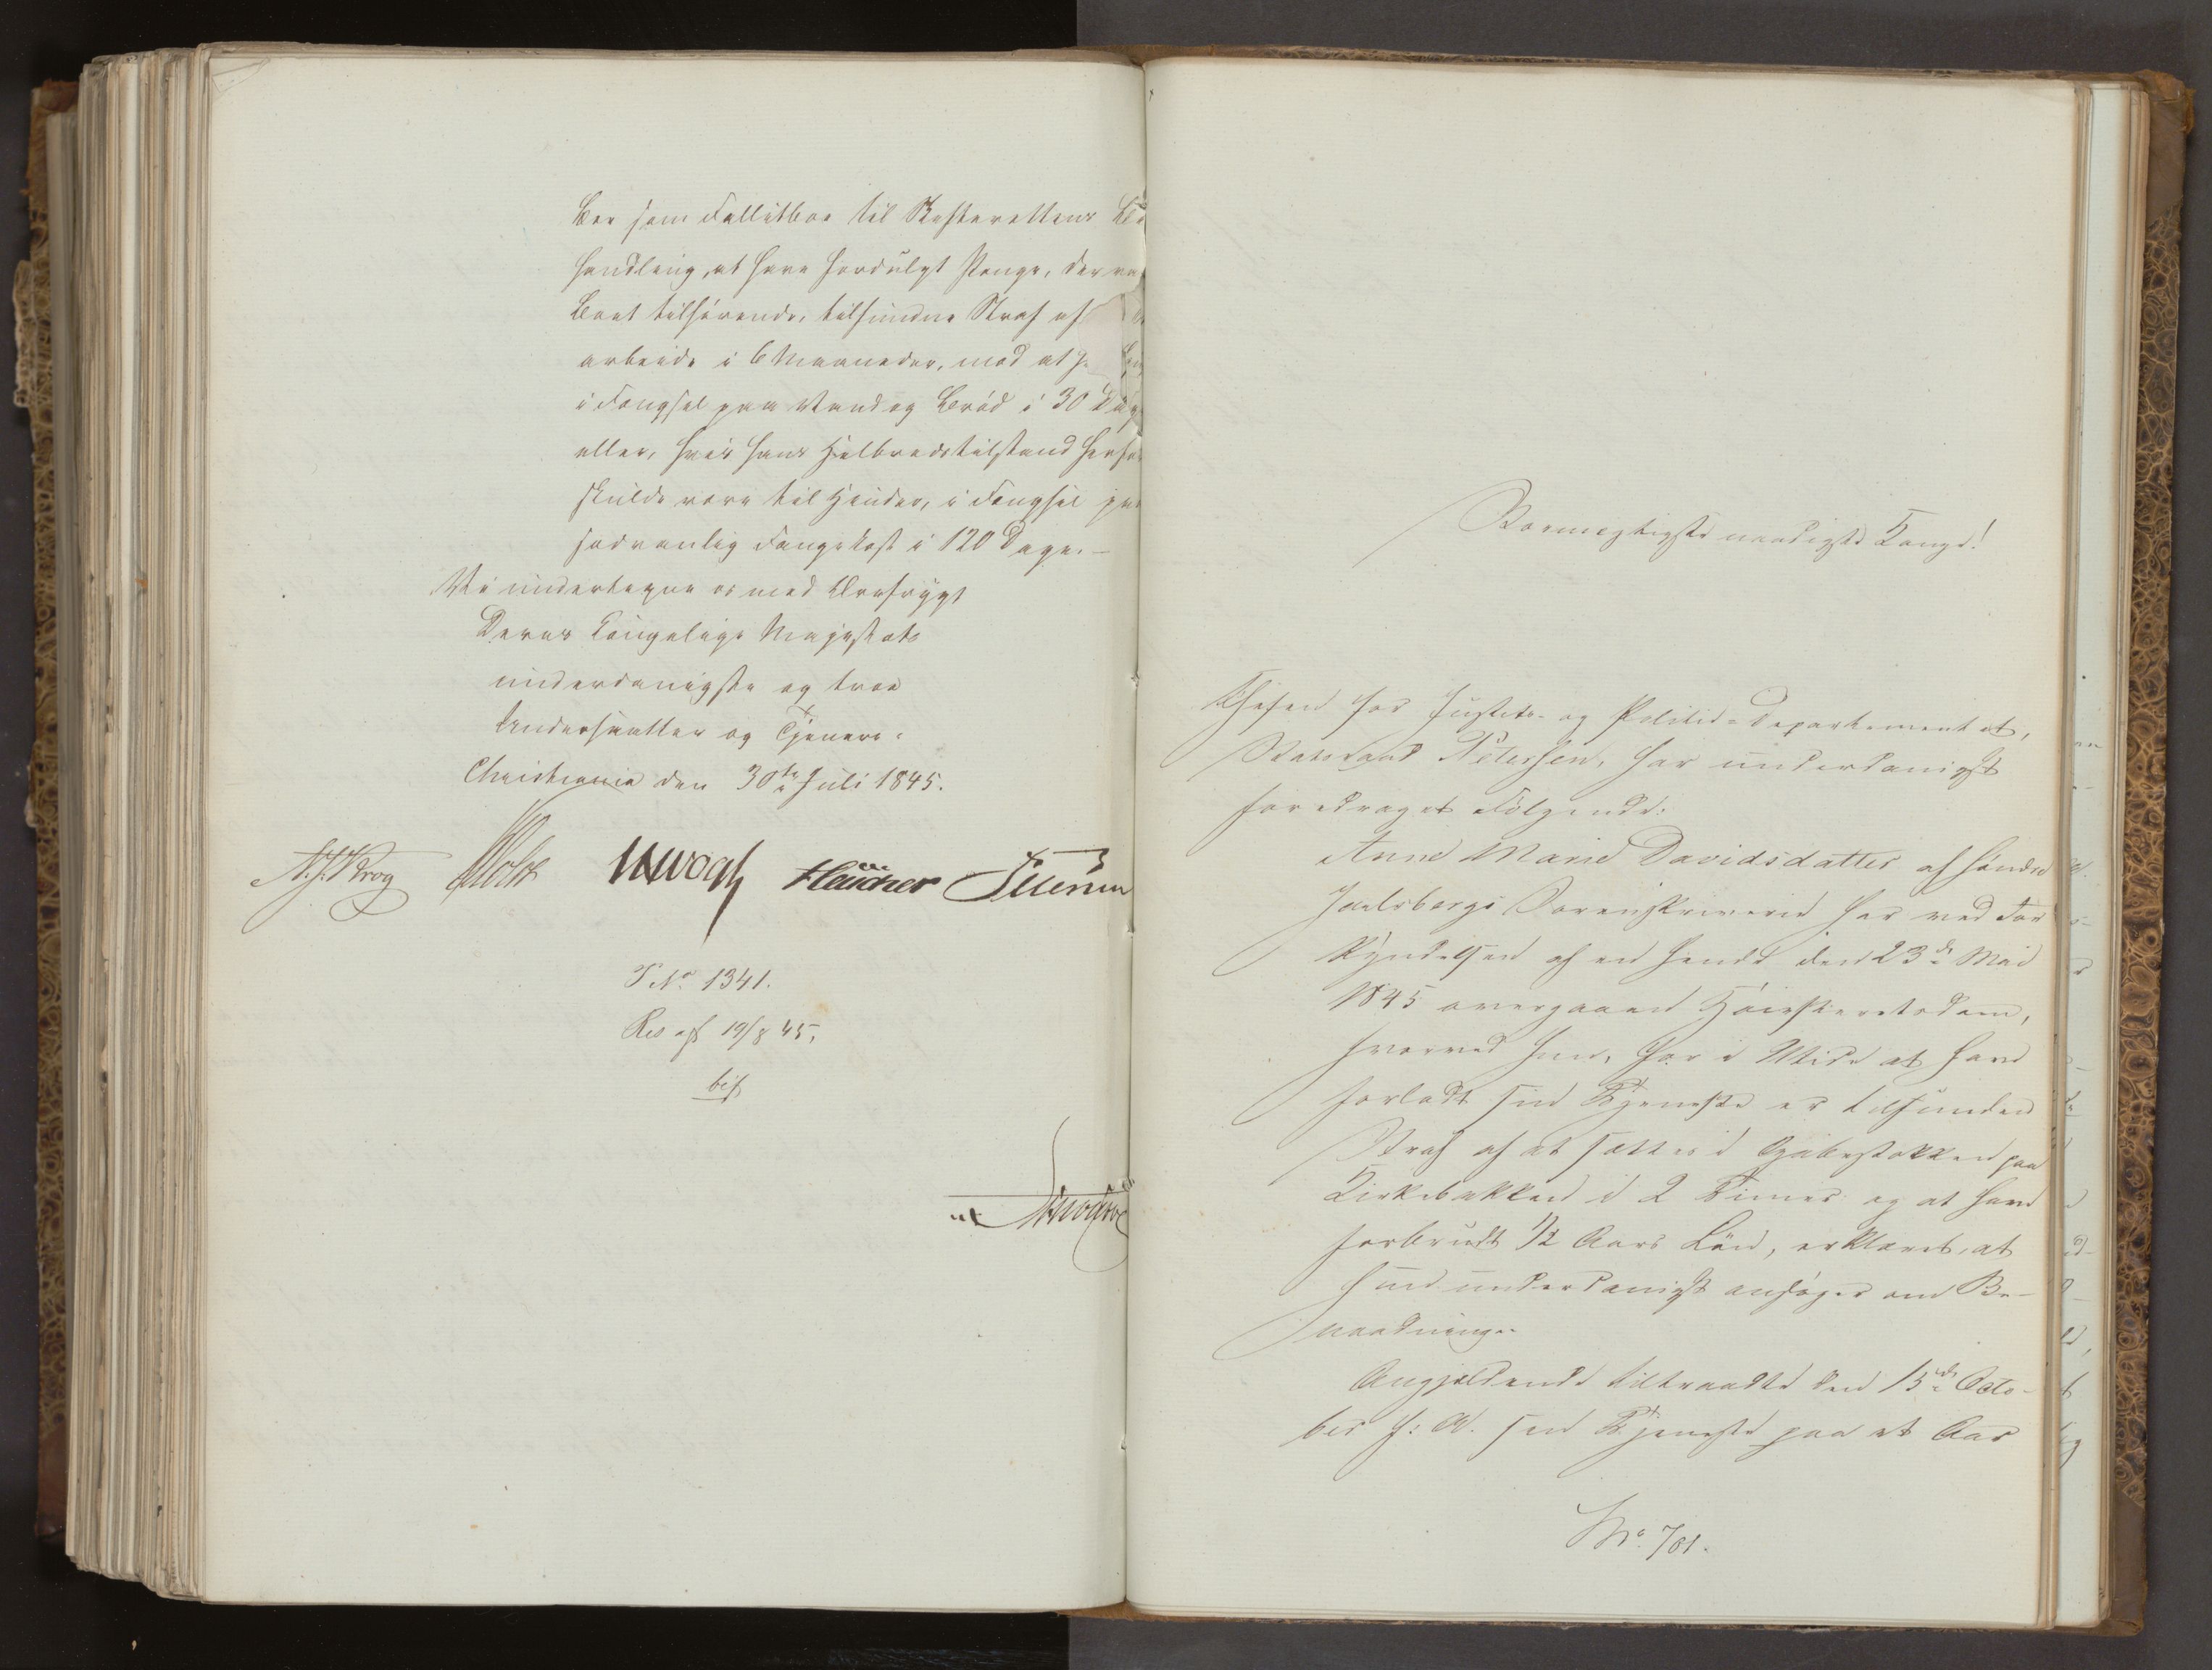 Boe som Fallitboe til Skifterettens Be
handling, at have fordulgt Penge, der va
Boet tilhørende, tilfundne Straf af
arbeide i 6 Maaneder, mod at
i Fængsel paa Vand og Brød i 30 Dag
eller, hvis hans Helbredstilstand herfor
skulde være til Hinder, i Fængsel paa
sædvanlig Fangekost i 120 Dage.-
Vi undertegne os med Ærefrygt
Deres Kongelige Majestæts
underdanigste og troe
Undersaatter og Tjenere.
Christiania den 30te Juli 1845.
N. J. Krog Holst Vogt Petersen
P No 1341.
Res af 19/8 45,
bif
Stormægtigste naadigste Konge!
Chefen for Justits- og Politie-Departementet,
Statsraad Petersen, har underdanigst
foredraget Følgende:
Anne Marie Davidsdatter af søndre
Jarlsbergs Sorenskriverie har ved For
kyndelsen af en hende den 23de Mai
1845 overgaaen Høiesteretsdom,
hvorved hun, for i Utide at have
forladt sin Tjeneste er tilfunden
Straf af at sættes i Gabestokken paa
Kirkebakken i 2 Timer og at have
forbrudt 1/2 Aars Løn, erklæret, at
hun underdanigst ansøger om Be-
naadning.
Angjældende tiltraadte den 15de Octo-
ber f: A. sin Tjeneste paa et Aar
No. 701.